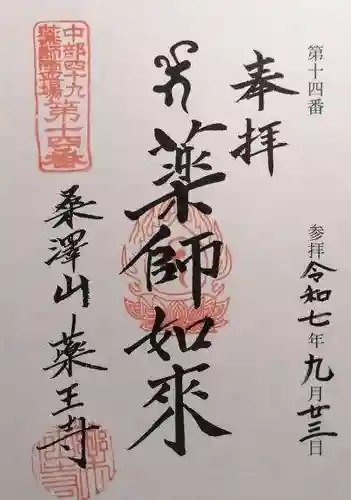 第十四番
参拝令和七年九月廿三日
奉拝
薬師如來
中部四十九
薬師霊場
第十四番
桑澤山薬王寺